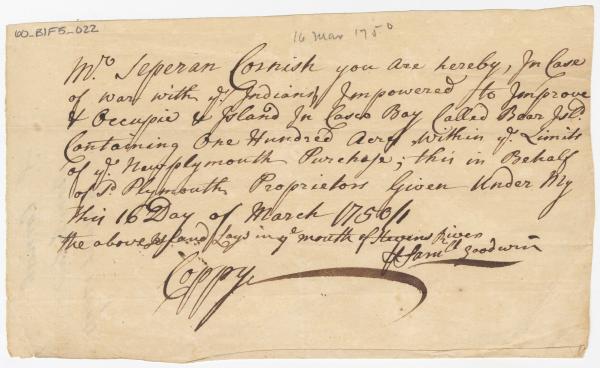 60_B1F5_022
16 Mar 1750
Mr. Seperan Cornish you are hereby, In Case
of war with ye. Indians, Impowered to Improve
& Occupie Island In Casco Bay Called Bear Isld.
Containing One Hundred Acres Within ye. Limits
of ye. New plymouth Purchase; this in Behalf
of Sd Plymouth Proprietors Given Under My
this 16 Day of March 1750/1
the above Island Lays in ye mouth of Stevens River
Saml. Goodwin
Coppy